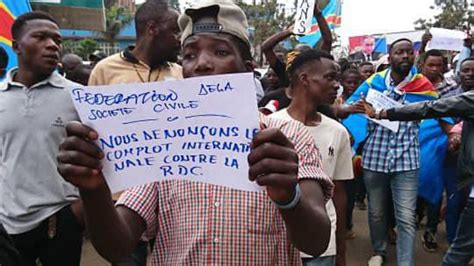 FEDERATION DE LA
SOCIETE CIVILE
NOUS DENONÇONS LE
COMPLOT INTERNATI
NALE CONTRE LA
RDC.